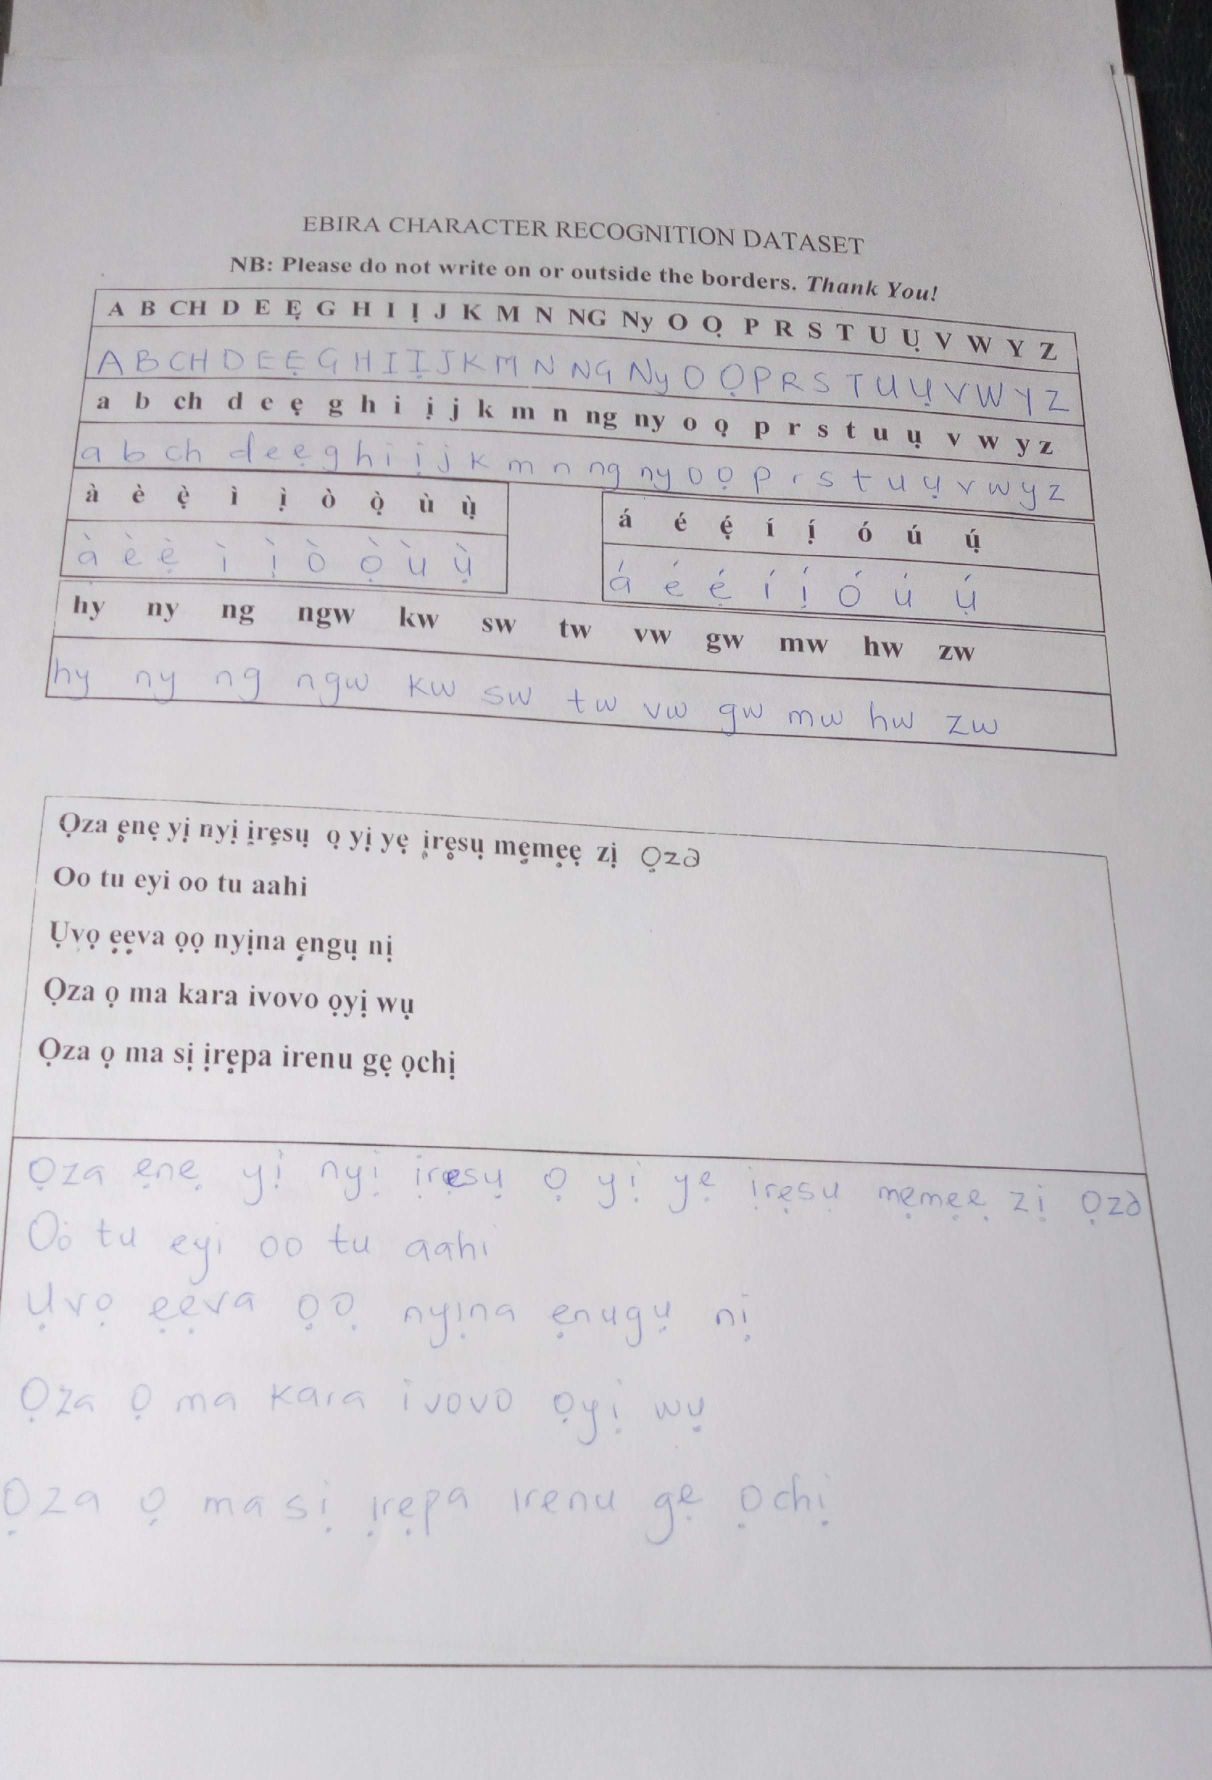 EBIRA CHARACTER RECOGNITION DATASET
NB: Please do not write on or outside the borders. Thank You!
A B CH D E Ẹ G H I Ị J K M N NG Ny O Ọ P R S T U Ụ V W Y Z
A B CH D E Ẹ G H I Ị J K M N NG Ny O Ọ P R S T U Ụ V W Y Z
a b ch d e ẹ g h i ị j k m n ng ny o ọ p r s t u ụ v w y z
a b ch d e ẹ g h i ị j k m n ng ny o ọ p r s t u ụ v w y z
à è ẹ̀ ì ị̀ ò ọ̀ ù ụ̀
à è ẹ̀ ì ị̀ ò ọ̀ ù ụ̀
á é ẹ́ í ị́ ó ú ụ́
á é ẹ́ í ị́ ó ú ụ́
hy ny ng ngw kw sw tw vw gw mw hw zw
hy ny ng ngw kw sw tw vw gw mw hw zw
Ọza ẹnẹ yị nyị ịrẹsụ ọ yị yẹ ịrẹsụ mẹmẹẹ zị Ọzə
Oo tu eyi oo tu aahi
Ụvọ ẹẹva ọọ nyịna ẹngụ nị
Ọza ọ ma kara ivovo ọyị wụ
Ọza ọ ma sị ịrẹpa irenu gẹ ọchị
Ọza ẹnẹ yị nyị irẹsụ ọ yị yẹ ịrẹsụ mẹmẹẹ zị Ọzə
Oo tu eyi oo tu aahi
Ụvọ ẹẹva ọọ nyịna ẹnugụ nị
Ọza ọ ma kara ivovo ọyị wụ
Ọza ọ ma sị ịrẹpa irenu gẹ ọchị